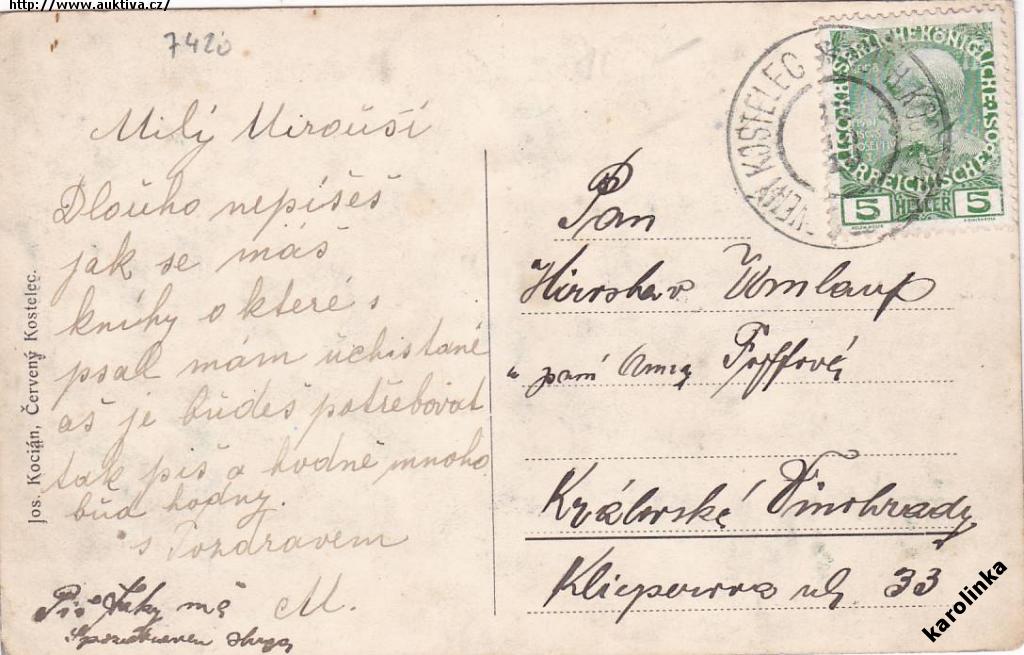 http://www.auktiva.cz/
7420
Milý Mirouší
Dloůho nepíšeš
jak se máš
kníhy o které s
psal mám ůchistané
aš je bůdeš potřebovat
tak piš a hodně mnoho
bůď hodny.
s Pozdravem
M.
Piš taky mě
Jos. Kocián, Červený Kostelec.
ČERVENÝ KOSTELEC
KAISERLICHE KÖNIGLICHE ÖSTERREICHISCHE
5 HELLER 5
Pan
Miroslav Umlauf
u paní Anna
Královské Vinohrady
Klicperova ul. 33
karolinka